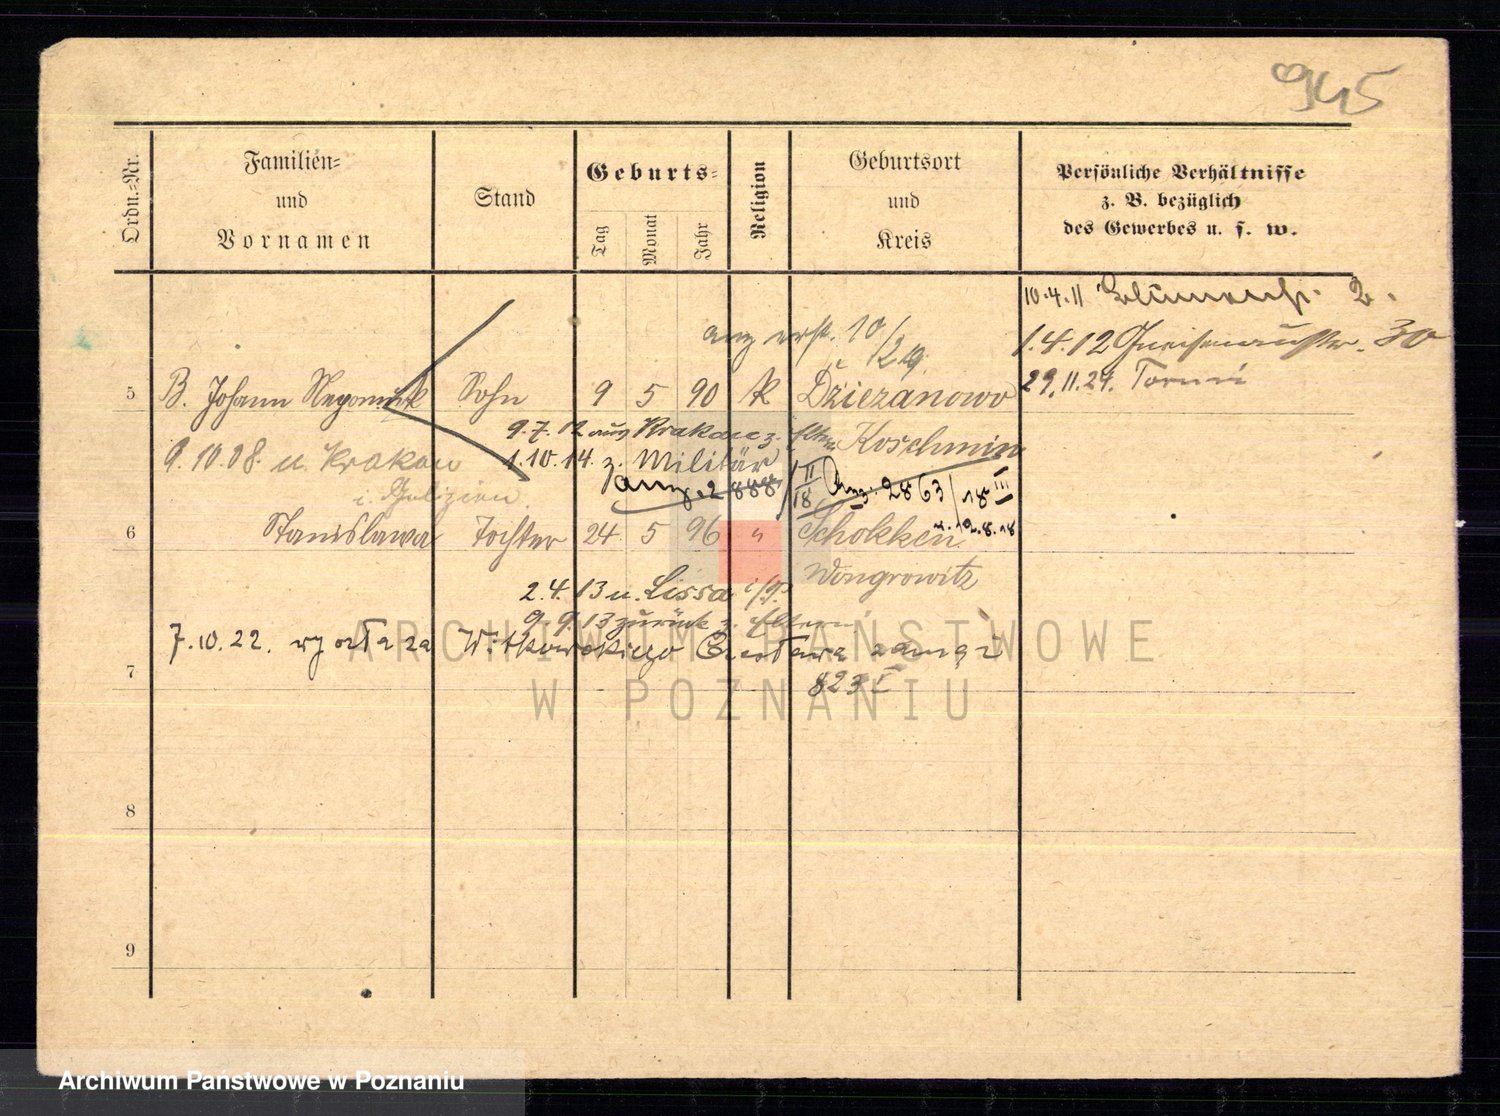 945
Ordn.-Nr.
Familien-
und
Vornamen
Stand
Geburts-
Tag
Monat
Jahr
Religion
Geburtsort
und
Kreis
Persönliche Verhältnisse
z. B. bezüglich
des Gewerbes u. s. w.
10.4.11 2.
1.4.12 Gneisenaustr. 30
29.11.21. Toruń
anz erst. 10/
/2 19.
5 B. Johann Nepomuk Sohn 9 5 90 k Dzierzanowo
9.7.12 aus Krakau z. Eltern Koschmin
9.10.08. u. Krakau 1.10.14. z. Militär
i. Galizien
Anz. 2888/II 18 Anz. 2863/18 III
6 Stanislawa Tochter 24. 5 96 " Schokken
2.8.18
Wongrowitz
2.4.13 u. Lissa i/P.
9.9.13 zurück z. Eltern
7.10.22. wyszła za Witkowskiego Czesława
823 I
7
8
9
ARCHIWUM PAŃSTWOWE
W POZNANIU
Archiwum Państwowe w Poznaniu